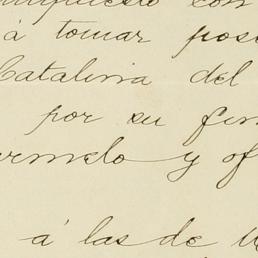 con
á tomar pose
Catalina del
por su fin
rmelo y of
á las de U